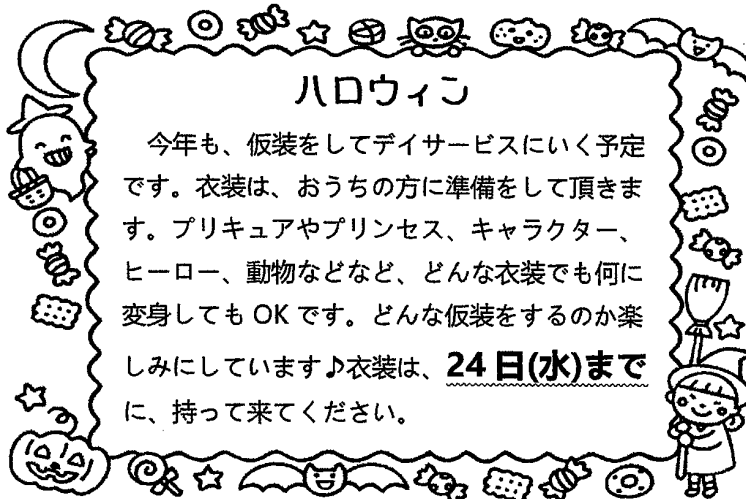 ハロウィン
　今年も、仮装をしてデイサービスにいく予定
です。衣装は、おうちの方に準備をして頂きま
す。プリキュアやプリンセス、キャラクター、
ヒーロー、動物などなど、どんな衣装でも何に
変身しても OK です。どんな仮装をするのか楽
しみにしています♪衣装は、24 日(水)まで
に、持って来てください。